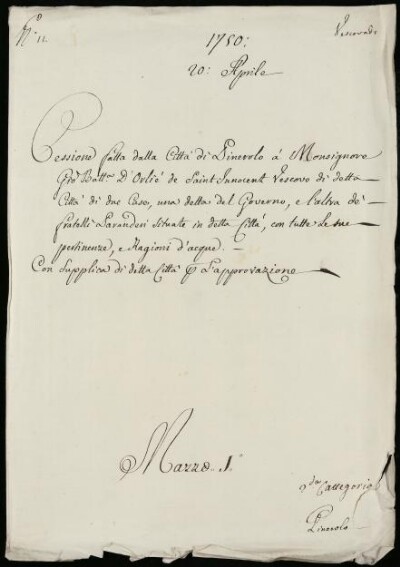 N.º 12
Vescovadi
1750:
20: Aprile
Cessione fatta dalla Città di Pinerolo à Monsignore
Gio Batt.a D'Orlié de Saint Innocent Vescovo di detta
Città di due Case, una detta del Governo, e l'altra de'
fratelli Parandori situate in detta Città, con tutte le sue
pertinenze, e Ragioni d'acque.
Con Supplica di detta Città per L'approvazione
Mazzo.. 1.
2da Cattegoria
Pinerolo